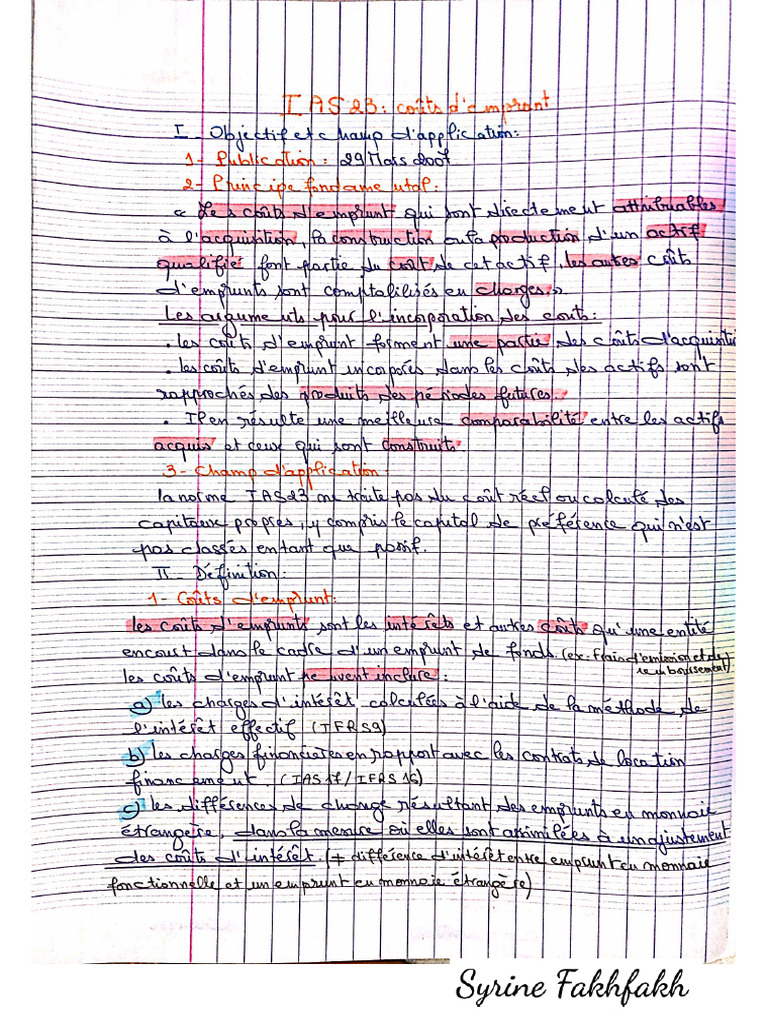 IAS 23 : coûts d'emprunt
I - Objectif et champ d'application :
1 - Publication : 29 Mars 2007
2 - Principe fondamental :
« Les coûts d'emprunt qui sont directement attribuables
à l'acquisition, la construction ou la production d'un actif
qualifié font partie du coût de cet actif, les autres coûts
d'emprunts sont comptabilisés en charges. »
Les arguments pour l'incorporation des couts :
. les coûts d'emprunt forment une partie des coûts d'acquisition
. les coûts d'emprunt incorporés dans les coûts des actifs sont
rapprochés des produits des périodes futures.
. Il en résulte une meilleure comparabilité entre les actifs
acquis et ceux qui sont construits.
3 - Champ d'application :
la norme IAS 23 ne traite pas du coût réel ou calculé des
capitaux propres, y compris le capital de préférence qui n'est
pas classés en tant que passif.
II - Définition :
1 - Coûts d'emprunt :
les coûts d'emprunts sont les intérêts et autres coûts qu'une entité
encourt dans le cadre d'un emprunt de fonds. (ex: frais d'émission et de
remboursement)
les coûts d'emprunt peuvent inclure :
a) les charges d'intérêt calculées à l'aide de la méthode de
l'intérêt effectif (IFRS 9)
b) les charges financières en rapport avec les contrats de location
financement. (IAS 17 / IFRS 16)
c) les différences de change résultant des emprunts en monnaie
étrangère, dans la mesure où elles sont assimilées à un ajustement
des coûts d'intérêt. (+ différence d'intérêt entre emprunt en monnaie
fonctionnelle et un emprunt en monnaie étrangère)
Syrine Fakhfakh